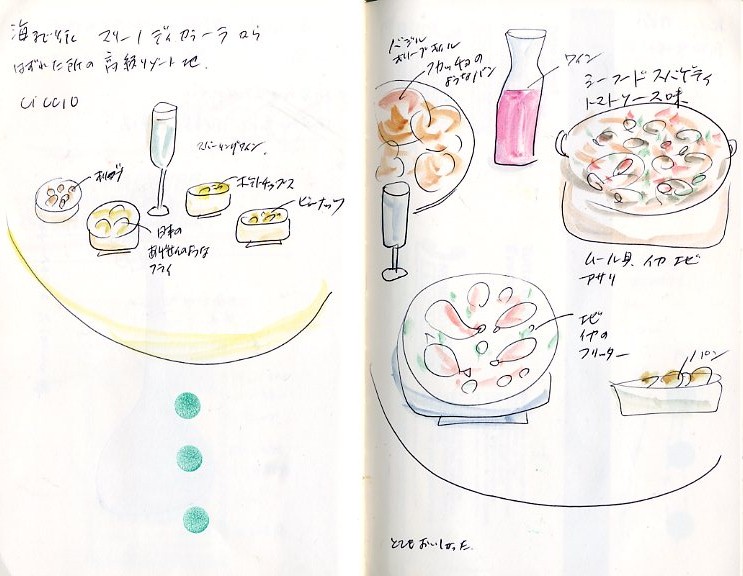 海まで歩く マリーノ ディ カラーラ から
はずれた所の 高級リゾート地.
CICCIO
スパークリングワイン.
オリーブ
ポテトチップス
ピーナッツ
日本の
あげせんのような
フライ
バジル
オリーブオイル
フォカッチョの
ようなパン
ワイン
シーフードスパゲティ
トマトソース味
ムール貝. イカ エビ
アサリ
エビ
イカの
フリッター
パン
とてもおいしかった.